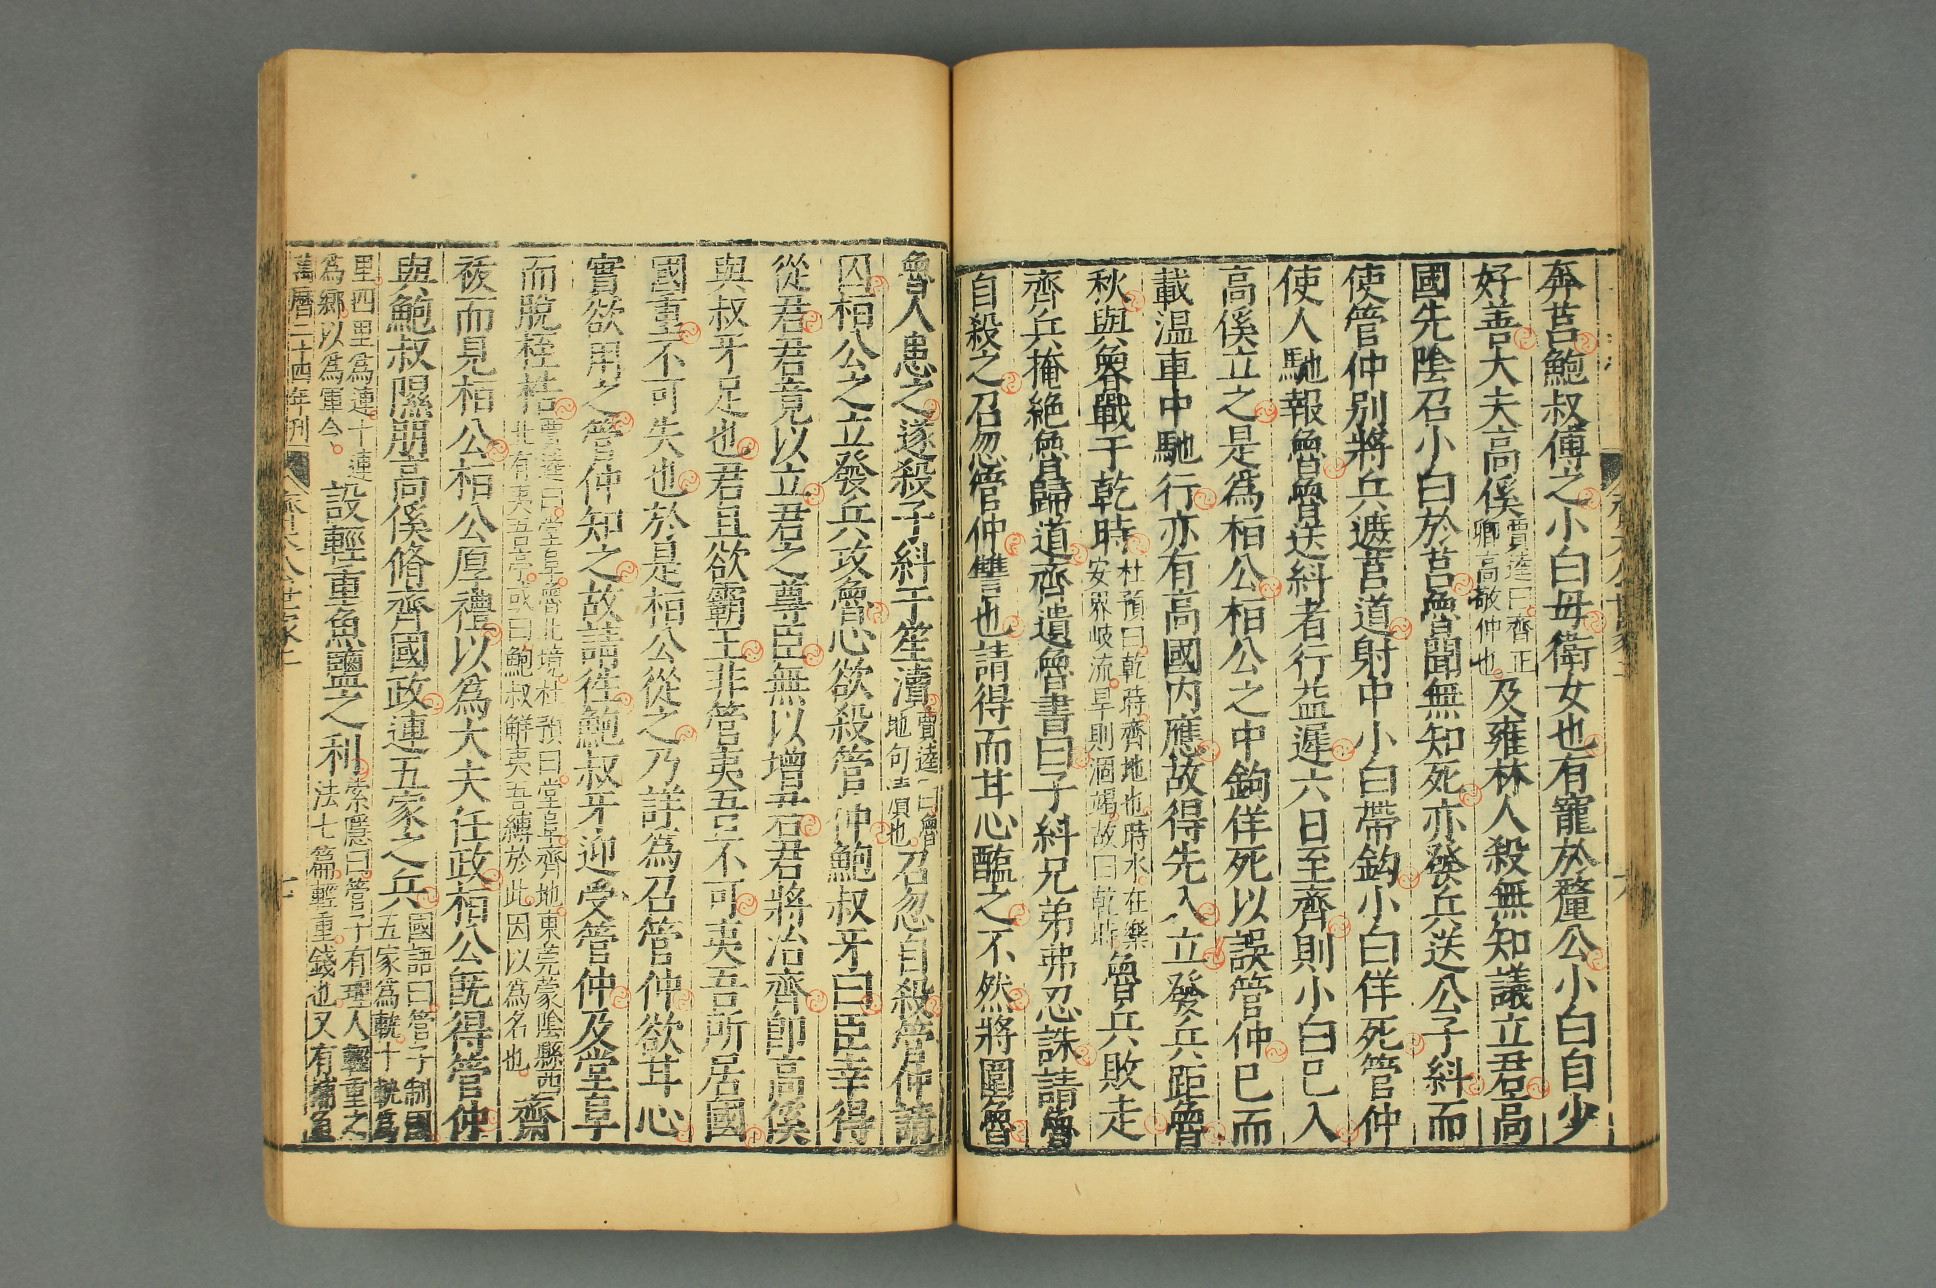 奔莒鮑叔傅之小白母衛女也有寵於釐公小白自少
好善大夫高傒
賈逵曰齊正
卿高敬仲也
及雍林人殺無知議立君高
國先陰召小白於莒魯聞無知死亦發兵送公子糾而
使管仲別將兵遮莒道射中小白帶鈎小白佯死管仲
使人馳報魯魯送糾者行益遲六日至齊則小白已入
高傒立之是為桓公桓公之中鉤佯死以誤管仲已而
載溫車中馳行亦有高國內應故得先入立發兵距魯
秋與魯戰于乾時
杜預曰乾時齊地也時水在樂
安界岐流旱則涸竭故曰乾時
魯兵敗走
齊兵掩絕魯歸道齊遺魯書曰子糾兄弟弗忍誅請魯
自殺之召忽管仲讐也請得而甘心醢之不然將圍魯
魯人患之遂殺子糾于笙瀆
賈逵曰魯
地句瀆也
召忽自殺管仲請
囚桓公之立發兵攻魯心欲殺管仲鮑叔牙曰臣幸得
從君君竟以立君之尊臣無以增君君將治齊即高傒
與叔牙足也君且欲霸王非管夷吾不可夷吾所居國
國重不可失也於是桓公從之乃詳為召管仲欲甘心
實欲用之管仲知之故請往鮑叔牙迎受管仲及堂阜
而脫桎梏
賈逵曰堂阜魯北境杜預曰堂阜齊地東莞蒙陰縣西
北有夷吾亭或曰鮑叔解夷吾縛於此因以為名也
齋
祓而見桓公桓公厚禮以為大夫任政桓公既得管仲
與鮑叔隰朋高傒脩齊國政連五家之兵
國語曰管子制國
五家為軌十軌為
里四里為連十連
為鄉以為軍令
設輕重魚鹽之利
索隱曰管子有理人輕重之
法七篇輕重錢也又有捕魚
萬曆二十四年刊